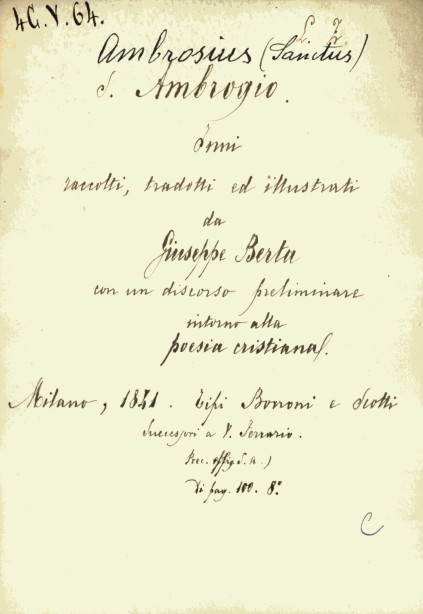 4C.V.64.
Ambrosius (Sanctus)
S. Ambrogio.
Inni
raccolti, tradotti ed illustrati
da
Giuseppe Berta
con un discorso preliminare
intorno alla
poesia cristiana.
Milano, 1841. Tipi Borroni e Scotti
Successori a V. Ferrario.
Prec. effig. S. A.)
Di pag. 100. 8°
C